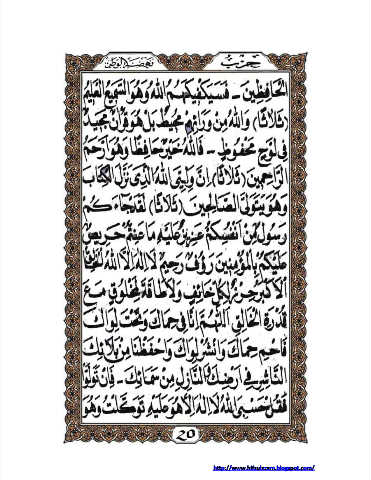 حزب
الحَافِظِينَ - فَسَيَكْفِيكَهُمُ اللهُ وَهُوَ السَّمِيعُ العَلِيمُ
(ثَلَاثًا) وَاللهُ مِنْ وَرَائِهِمْ مُحِيطٌ بَلْ هُوَ قُرْآنٌ مَجِيدٌ
فِي لَوْحٍ مَحْفُوظٍ - فَاللهُ خَيْرٌ حَافِظًا وَهُوَ أَرْحَمُ
الرَّاحِمِينَ (ثَلَاثًا) إِنَّ وَلِيَّيَ اللهُ الَّذِي نَزَّلَ الكِتَابَ
وَهُوَ يَتَوَلَّى الصَّالِحِينَ (ثَلَاثًا) لَقَدْ جَاءَكُمْ
رَسُولٌ مِنْ أَنْفُسِكُمْ عَزِيزٌ عَلَيْهِ مَا عَنِتُّمْ حَرِيصٌ
عَلَيْكُمْ بِالْمُؤْمِنِينَ رَؤُوفٌ رَحِيمٌ لَا إِلَهَ إِلَّا اللهُ
الأَكْبَرُ حِرْزٌ لِكُلِّ خَائِفٍ وَلَا طَاقَةَ لِمَخْلُوقٍ مَعَ
قُدْرَةِ الخَالِقِ اللَّهُمَّ إِنَّا فِي حِمَاكَ وَتَحْتَ لِوَاكَ
فَاحْمِ حِمَاكَ وَانْشُرْ لِوَاكَ وَاحْفَظْنَا مِنْ بَلَائِكَ
فِي أَرْضِكَ النَّازِلِ مِنْ سَمَائِكَ - فَإِنْ تَوَلَّوْا
فَقُلْ حَسْبِيَ اللهُ لَا إِلَهَ إِلَّا هُوَ عَلَيْهِ تَوَكَّلْتُ وَهُوَ
20
http://www.hitsulxem.blogspot.com/